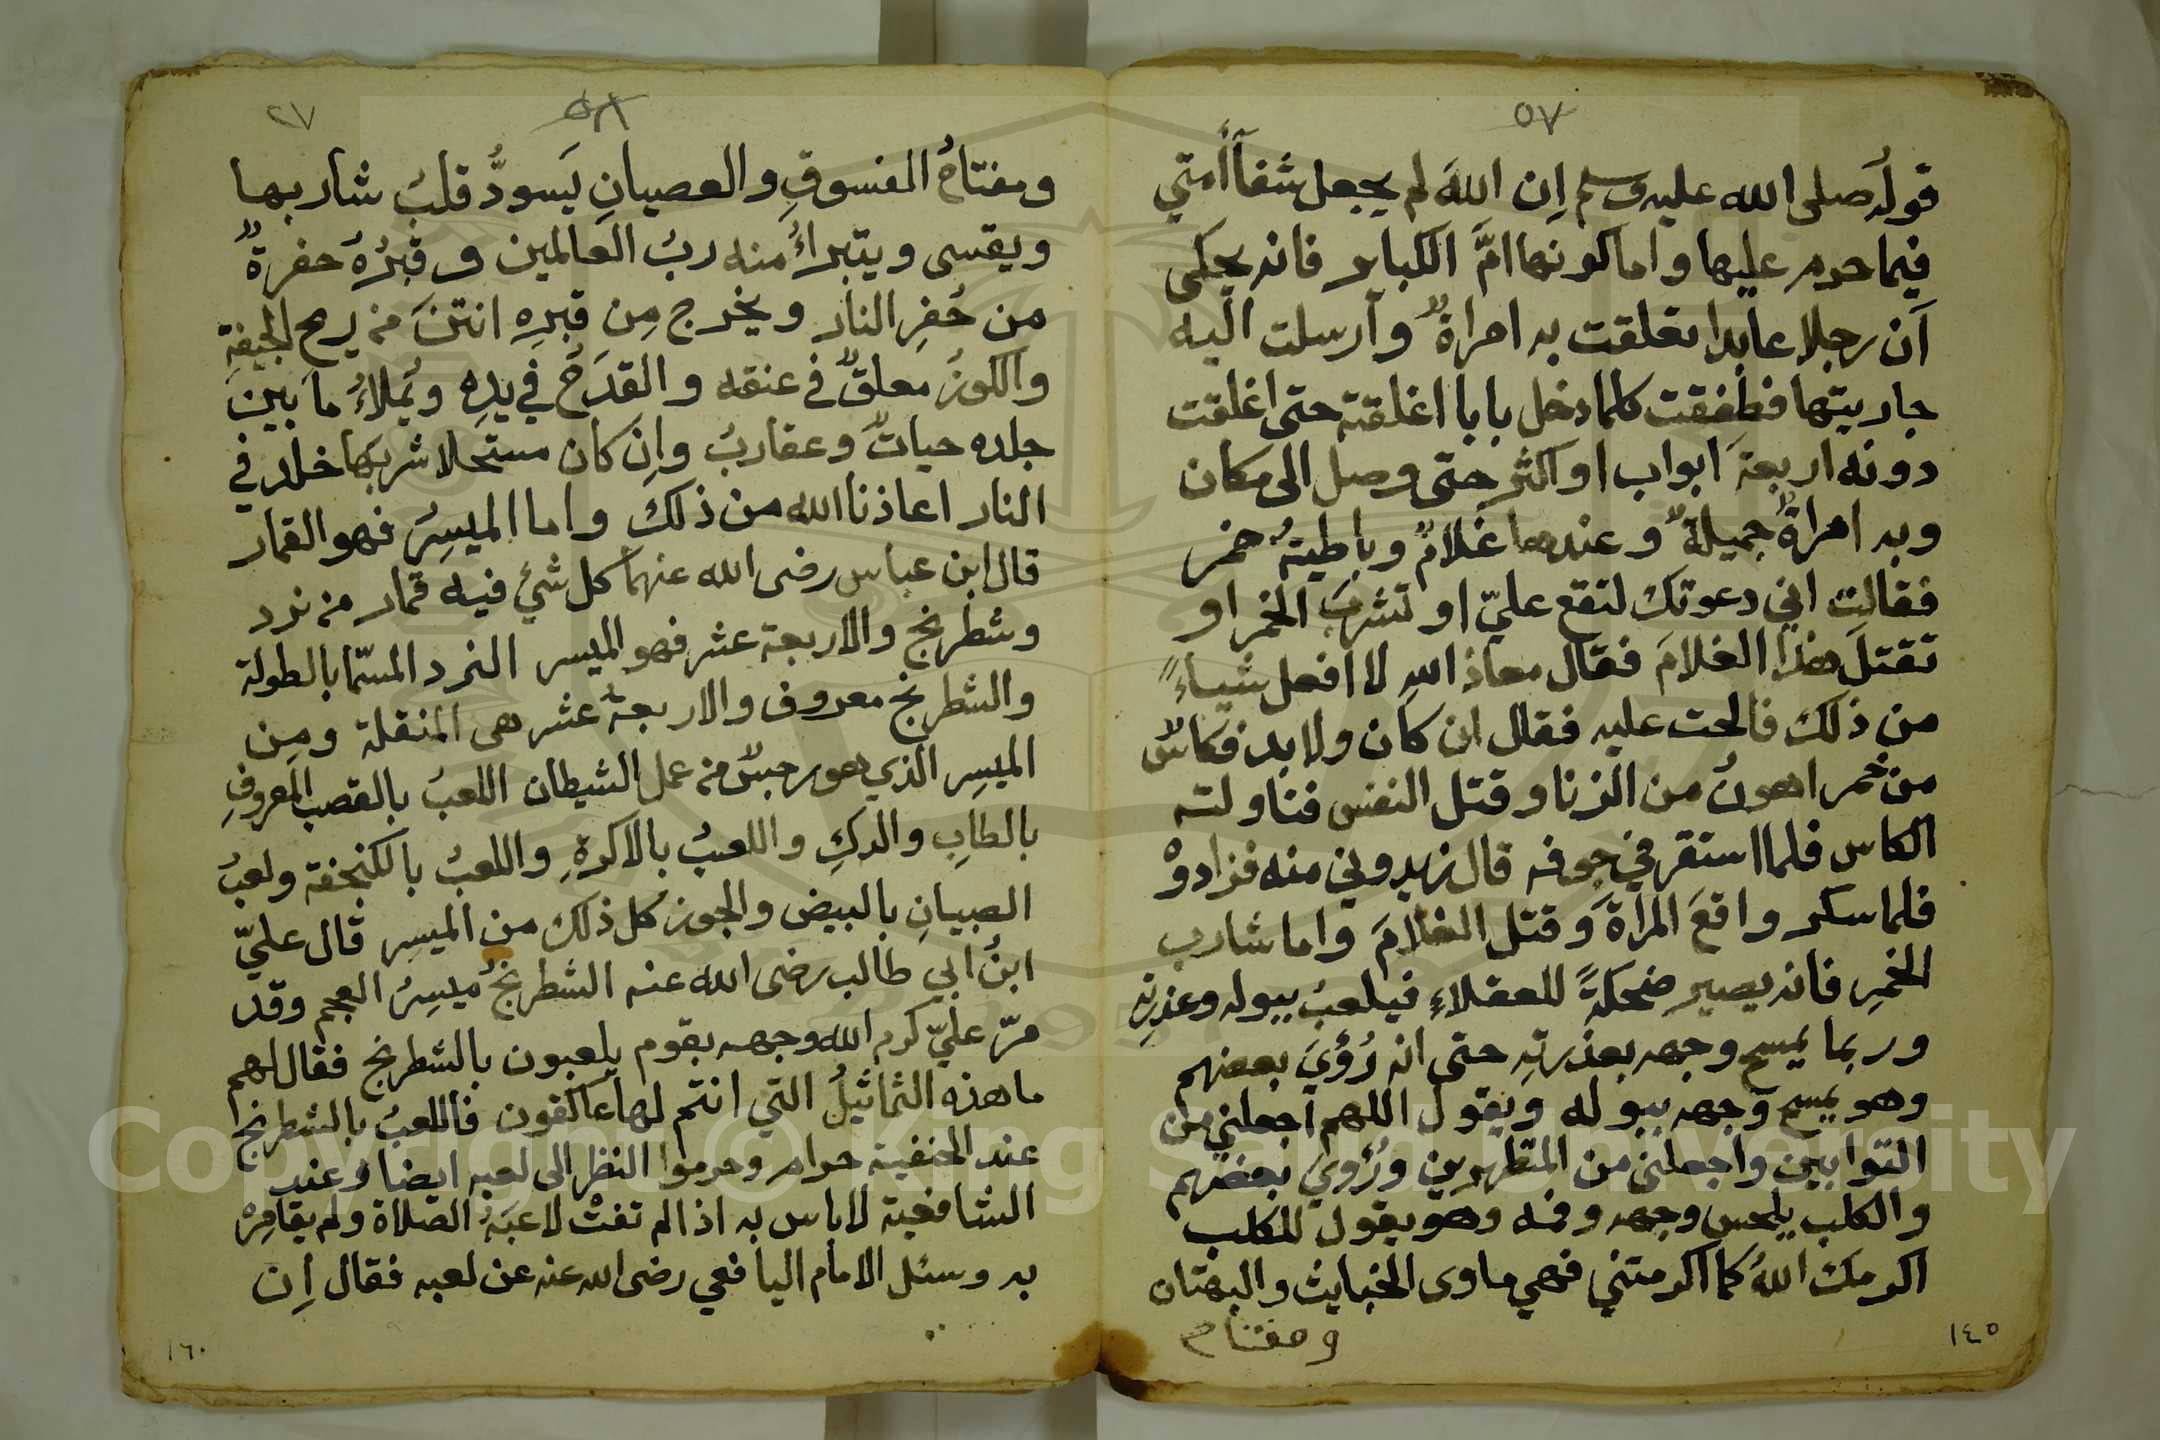 ٥٧
قوله صلى الله عليه وسلم إن الله لم يجعل شفآأُمتي
فيما حرم عليها واما كونها امَّ الكباير فانه يحكى
آن رجلا عابدا تعلقت به امراةٌ وآرسلت اليه
جاريتها فطفقت كلما دخل بابا اغلقته حتى اغلقت
دونه اربعةَ ابواب او اكثر حتى وصل الى مكان
وبه امراةٌ جميلةٌ وعندها غلامٌ وباطيةُ خمر
فقالت اني دعوتك لتقع عليّ او تشربَ الخمر او
تقتلَ هذا الغلامَ فقال معاذ اللهِ لا افعل شياءً
من ذلك فالحت عليه فقال ان كان ولابد فكاسٌ
من خمر اهونُ من الزنا وقتل النفس فناولته
الكاس فلما استقر في جوفه قال زيدوني منه فزادوْ
فلما سكر واقعَ المراةَ وقتل الغلامَ واما شارب
الخمرِ فانه يصير ضحكةً للعقلاءِ فيلعبُ ببوله وعذرته
وربما يمسح وجهه بعذرتِه حتى انه رُؤيَ بعضهم
وهو يمسح وجهه ببوله ويقول اللهم اجعلني من
التوابين واجعلني من المتطهرين ورُؤيَ بعضهم
والكلب يلحس وجهه وفمه وهو يقول للكلب
اكرمك اللهُ كما اكرمتني فهي ماوى الخبايث والبهتان
ومفتاح
١٤٥
٥٨
٢٧
ومفتاحُ الفسوقِ والعصيانِ يَسودُّ قلبُ شاربها
ويقسى ويتبراءُ منه ربُ العالمين وقبرُهُ حفرةٌ
من حُفرِ النار ويخرج مِن قبرهِ انتنَ من ريح الجيفةِ
والكوزُ معلقٌ في عنقه والقدَحُ في يدهِ ويُملاءُ ما بينَ
جلده حياتٌ وعقاربُ وإن كان مستحلا شربَها خلد في
النار اعاذنا الله من ذلك واما الميسِرُ فهو القمار
قال ابن عباس رضى الله عنهما كل شئ فيه قمار من نرد
وشطرنج والاربعة عشر فهو الميسر النرد المسمّا بالطولة
والشطرنج معروف والاربعةَ عشر هى المنقلة ومِن
الميسِرِ الذي هو رجسٌ من عمل الشيطان اللعبُ بالقصب المعروفِ
بالطابِ والدكِ واللعبُ بالاكرةِ واللعبُ بالكنجفة ولعبُ
الصبيانِ بالبيض والجوز كل ذلك من الميسِر قال عليّ
ابنُ ابي طالب رضى الله عنه الشطرنجُ ميسِرُ العجم وقد
مرّ عليّ كرم الله وجهه بقوم يلعبون بالشطرنج فقال لهم
ما هذه التماثيلُ التي انتم لها عاكفون فاللعبُ بالشطرنج
عند الحنفية حرام وحرموا النظر الى لعبه ايضا وعند
الشافعية لاباس به اذا لم تفتْ لاعبَهُ الصلاة ولم يقامِرْ
به وسئل الامام اليافعي رضى الله عنه عن لعبه فقال إن
١٦٠
Copyright © King Saud University